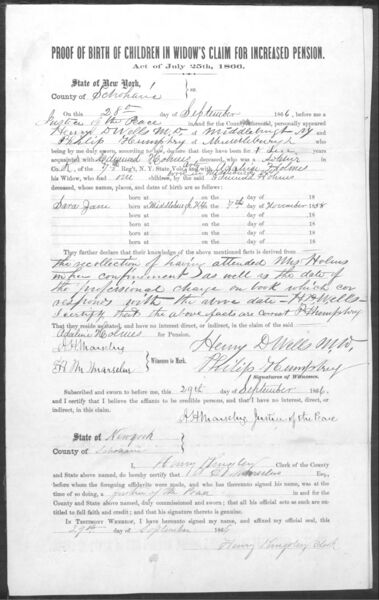 PROOF OF BIRTH OF CHILDREN IN WIDOW'S CLAIM FOR INCREASED PENSION.
Act of July 25th, 1866.
State of New York,
County of Schoharie } ss:
On this 28th day of September 1866, before me a
Justice of the Peace in and for the County aforesaid, personally appeared
Henry D Wells M.D. of Middleburgh NY
Philip Humphry of Middleburgh
who being by me duly sworn, according to law, depose and say, that they have been
acquainted with Edmund Holmes deceased, who was a
Reg't, N. Y. State Vols. and with Adaline Holmes
his Widow, who had one children, by the said Edmund Holmes
deceased, whose names, places, and dates of birth are as follows:
Sara Jane born at Middleburgh NY on the 7th day of November 1858
born at on the day of 18
born at on the day of 18
born at on the day of 18
born at on the day of 18
They further declare that their knowledge of the above mentioned facts is derived from
the recollection of having attended Mrs Holmes
in her confinement as well as the date of
the professional charge on book which cor
responds with the above date - H D Wells -
I certify that the above facts are correct P Humphry
That they reside as stated, and have no interest, direct or indirect, in the claim of the said
Adaline Holmes for Pension.
Henry D Wells M.D.
Witnesses to Mark.
Philip Humphry
Signatures of Witnesses.
Subscribed and sworn to before me, this 29th day of September 1866,
and I certify that I believe the affiants to be credible persons, and that I have no interest, direct, or
indirect, in this claim.
Justice of the Peace
State of New York
County of Schoharie } ss:
I, Henry Kingsley Clerk of the County
and State above named, do hereby certify that Esq.,
before whom the foregoing affidavits were made, and who has thereunto signed his name, was at the
time of so doing, a justice of the Peace in and for the
County and State above named, duly commissioned and sworn; that all his official acts as such are en-
titled to full faith and credit; and that his signature thereto is genuine.
In Testimony Whereof, I have hereunto signed my name, and affixed my official seal, this
29th day of September 1866
Henry Kingsley Clerk